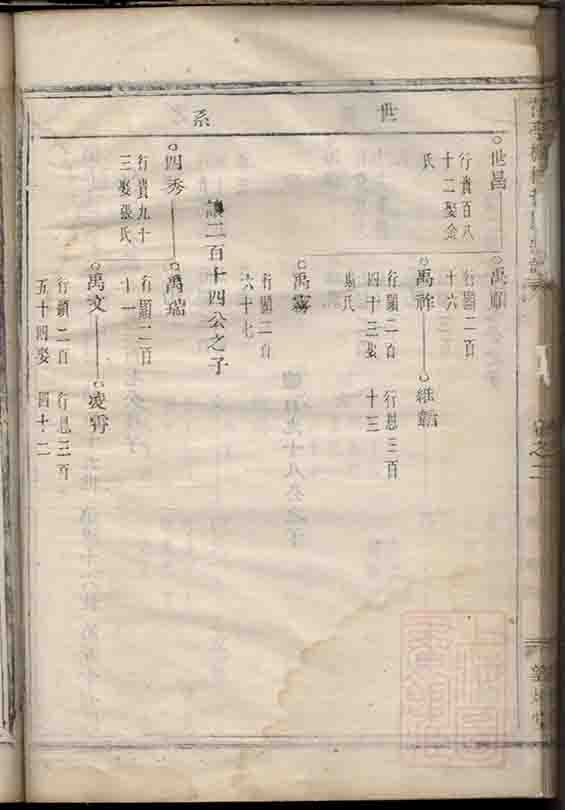 世系
世昌
行貴百八
十二娶金
氏
禹順
行顯二百
十六
禹祚
行顯二百
四十三娶
氏
維
行恩三百
十三
禹霖
行顯二百
六十七
謙二百十四公之子
四秀
行貴九十
三娶張氏
禹瑞
行顯二百
十一
禹文
行顯二百
五十四娶
凌霄
行恩三百
四十二
卷之二